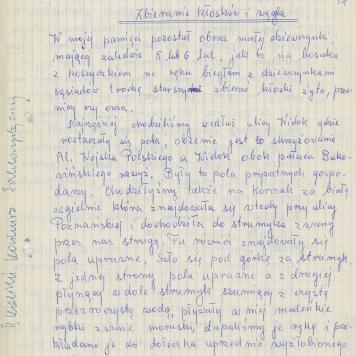 Zbieranie kłosków i węgla
W mojej pamięci pozostał obraz małej dziewczynki
mającej zaledwie 5 lub 6 lat, jak to na bosaka
z koszyczkiem na ręku biegłam z dziewczynkami
sąsiadów trochę starszymi zbierać kłoski żyta, psze-
nicy czy owsa.
Najczęściej chodziliśmy wzdłuż ulicy Widok gdzie
roztaczały się pola, obecnie jest to skrzyżowanie
Al. Wojska Polskiego a Widok obok pałacu Buko-
wińskiego
Były to pola prywatnych gospo-
darzy. Chodziłyśmy także na Korczak za białą
cegielnię która znajdowała się wtedy przy ulicy
Poznańskiej i dochodziła do strumyka zwanej
przez nas strugą. Tu również znajdowały się
pola uprawne. Szło się pod górkę za strumyk.
Z jednej strony pola uprawne a z drugiej
płynący w dole strumyk szumiący z czystą
przezroczystą wodą, pływały w niej maleńkie
rybki zwane moruski, łapaliśmy je ręką i prze-
kładano je do dołeczka uprzednio wyżłobionego.